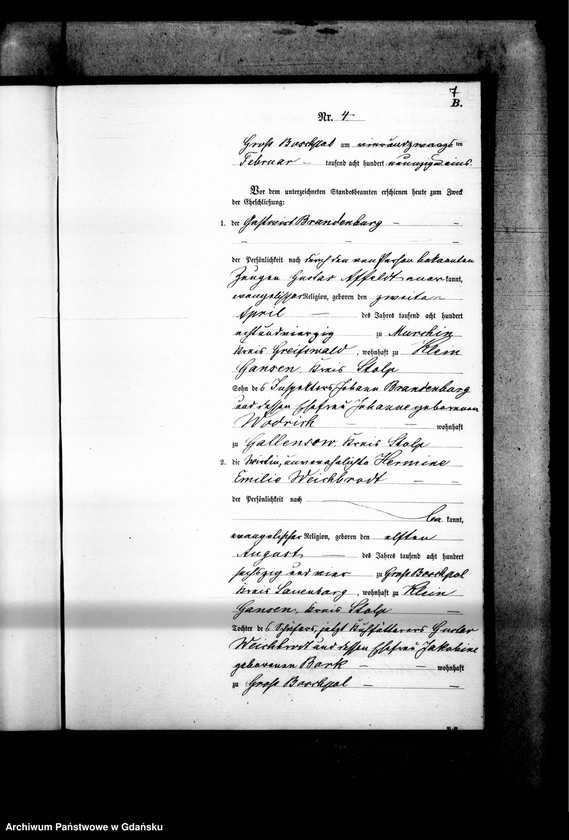 7
B.
Nr. 4
Groß Boschpol am vierundzwanzigsten
Februar tausend acht hundert neunzig und eins
Vor dem unterzeichneten Standesbeamten erschienen heute zum Zweck
der Eheschließung:
1. der Gastwirt Brandenburg
der Persönlichkeit nach durch den von Person bekannten
Zeugen Gustav Affeldt anerkannt,
evangelischer Religion, geboren den zweiten
April des Jahres tausend acht hundert
achtundvierzig zu Murchin
Kreis Greifswald, wohnhaft zu Klein
Gansen, Kreis Stolp
Sohn des Inspektors Johann Brandenburg
und dessen Ehefrau Johanne geborenen
Wodrich wohnhaft
zu Gallensow, Kreis Stolp
2. die Wirtin, unverehelichte Hermine
Emilie Weichbrodt
der Persönlichkeit nach
bekannt,
evangelischer Religion, geboren den elften
August des Jahres tausend acht hundert
sechszig und vier zu Groß Boschpol
Kreis Lauenburg, wohnhaft zu Klein
Gansen, Kreis Stolp
Tochter des Schäfers, jetzt Kuhfütterers Gustav
Weichbrodt und dessen Ehefrau Jakobine
geborenen Bark wohnhaft
zu Groß Boschpol
Archiwum Państwowe w Gdańsku